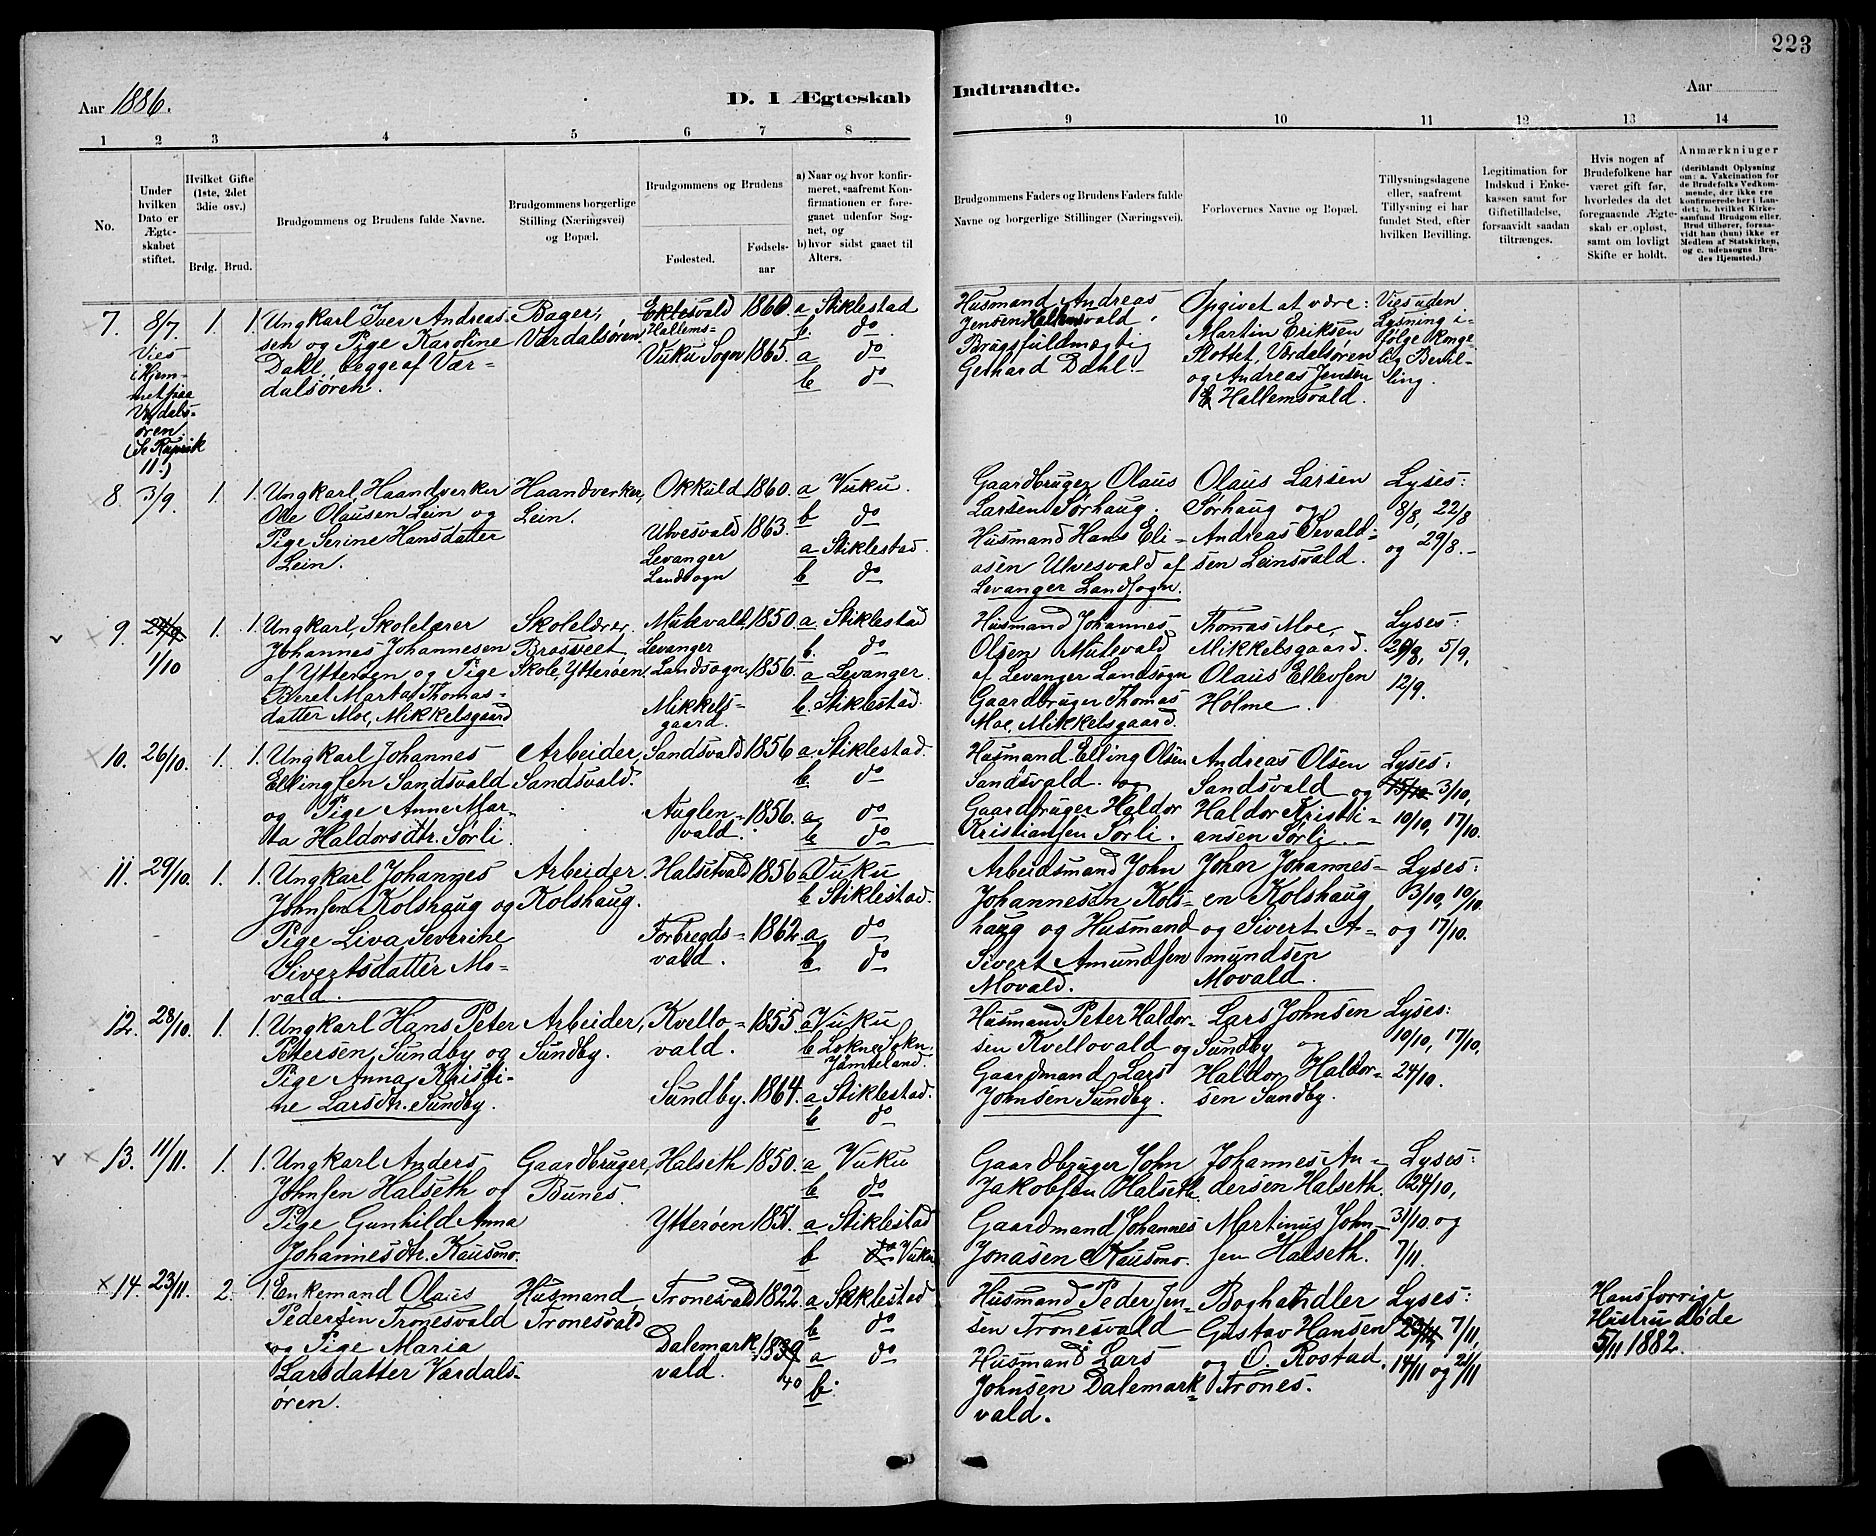 223
Aar 1886.
D. I Ægteskab
Indtraadte.
Aar
1 2 3 4 5 6 7 8 9 10 11 12 13 14
No.
Under hvilken Dato er Ægteskabet stiftet.
Hvilket Gifte (1ste, 2det 3die osv.)
Brdg. Brud.
Brudgommens og Brudens fulde Navne.
Brudgommens borgerlige Stilling (Næringsvei) og Bopæl.
Brudgommens og Brudens
Fødested.
Fødsels-aar
a) Naar og hvor konfirmeret, saafremt Konfirmationen er foregaaet udenfor Sognet, og
b) hvor sidst gaaet til Alters.
Brudgommens Faders og Brudens Faders fulde Navne og borgerlige Stillinger (Næringsvei).
Forlovernes Navne og Bopæl.
Tillysningsdagene eller, saafremt Tillysning ei har fundet Sted, efter hvilken Bevilling.
Legitimation for Indskud i Enkekassen samt for Giftetilladelse, forsaavidt saadan tiltrænges.
Hvis nogen af Brudefolkene har været gift før, hvorledes da det foregaaende Ægteskab er opløst, samt om lovligt Skifte er holdt.
Anmærkninger
(deriblandt Oplysning om: a. Vakcination for de Brudefolks Vedkommende, der ikke ere konfirmerede her i Landet; b. hvilket Kirkesamfund Brudgom eller Brud tilhører, forsaavidt han (hun) ikke er Medlem af Statskirken, og c. udensogns Brudes Hjemsted.)
7. 8/7 Vies i Hjemmet paa Værdalsøren. (Se Rubrik 11.)
1. 1.
Ungkarl Iver Andreas-
sen og Pige Karoline
Dahl, begge af Vær-
dalsøren.
Bager,
Værdalsøren
Eklesvald
Hallems-
Vuku Sogn
1860
1865.
a Stiklestad
b. do
a do
b do
Husmand Andreas
Jensen Hallemsvald
Brugsfuldmægtig
Gerhard Dahl
Opgivet at være:
Martin Eriksen
Slottet, Værdalsøren
og Andreas Jensen
Hallemsvald.
Vies uden
Lysning i-
følge Konge-
lig Bevil-
ling.
8. 3/9. 1. 1.
Ungkarl, Haandverker
Ole Olausen Lein og
Pige Serine Hansdatter
Lein.
Haandverker,
Lein.
Okkuld
Ulvesvald
Levanger
Landsogn
1860.
1863.
a Vuku.
b do
a Stiklestad.
b do
Gaardbruger Olaus
Larsen Sørhaug.
Husmand Hans Eli-
asen Ulvesvald af
Levanger Landsogn.
Olaus Larsen
Sørhaug og
Andreas Sevald-
sen Leinsvald.
Lyses:
8/8, 22/8
og 29/8.
9. 1/10 1. 1.
Ungkarl, Skolelærer
Johannes Johannesen
af Ytterøen og Pige
Beret Marta Thomas-
datter Moe, Mikkelsgaard
Skolelærer.
Brasveet
Skole, Ytterøen
Mulevald
Levanger
Landsogn
Mikkels-
gaard.
1850.
1856.
a Stiklestad
b. do
a Levanger.
b. Stiklestad.
Husmand Johannes
Olsen Mulevald
af Levanger Landsogn
Gaardbruger Thomas
Moe, Mikkelsgaard.
Thomas Moe,
Mikkelsgaard.
Olaus Ellevsen
Holme.
Lyses:
29/8, 5/9,
12/9.
10. 26/10. 1. 1.
Ungkarl Johannes
Ellingsen Sandsvald
og Pige Anne Mar-
ta Haldorsdtr. Sørli.
Arbeider,
Sandsvald.
Sandsvald
Auglen-
vald.
1856
1856.
a Stiklestad.
b do
a do
b do
Husmand Elling Olsen
Sandsvald. og
Gaardbruger Haldor
Kristiansen Sørli.
Andreas Olsen
Sandsvald og
Haldor Kristi-
ansen Sørli.
Lyses:
3/10,
10/10, 17/10.
11. 29/10. 1. 1.
Ungkarl Johannes
Johnsen Kolshaug og
Pige Liva Severine
Sivertsdatter Mo-
vald.
Arbeider.
Kolshaug.
Halsetvald
Forbregds-
vald.
1856
1862.
a Vuku
b Stiklestad.
a do
b do
Arbeidsmand John
Johannesen Kols-
haug og Husmand
Sivert Amundsen
Movald.
Johan Johannes-
en Kolshaug
og Sivert A-
mundsen
Movald.
Lyses:
3/10, 10/10.
og 17/10.
12. 28/10. 1. 1.
Ungkarl Hans Peter
Pettersen Sundby og
Pige Anna Kristi-
ne Larsdtr. Sundby.
Arbeider,
Sundby.
Kvello-
vald.
Sundby.
1855.
1864.
a Vuku
b Lokne Sokn,
Jämteland.
a Stiklestad.
b do
Husmand Peter Haldor-
sen Kvellovald og
Gaardmand Lars
Johnsen Sundby.
Lars Johnsen
Sundby og
Haldor Haldor-
sen Sundby.
Lyses:
10/10, 17/10,
24/10.
13. 11/11. 1. 1.
Ungkarl Anders
Johnsen Halseth og
Pige Gunhild Anna
Johannesdtr. Kausmo.
Gaardbruger,
Bunes.
Halseth
Ytterøen
1850.
1851.
a Vuku
b do
a Stiklestad
b do Vuku
Gaardbruger John
Jakobsen Halseth.
Gaardmand Johannes
Jonasen Kausmo.
Johannes An-
dersen Halseth.
Martinus John-
sen Halseth.
Lyses:
24/10,
31/10 og
7/11.
14. 23/11. 2. 1.
Enkemand Olaus
Pedersen Tronesvald
og Pige Maria
Larsdatter Værdals-
øren.
Husmand
Tronesvald
Tronesvald
Dalemark-
vald.
1822.
1839
40
a Stiklestad
b do
a do
b.
Husmand Peder Jen-
sen Tronesvald
Husmand Lars
Johnsen Dalemark-
vald.
Boghandler
Gustav Hansen
og O. Rostad,
Trones.
Lyses:
7/11,
14/11 og 21/11
Hans forrige
Hustru døde
5/11 1882.